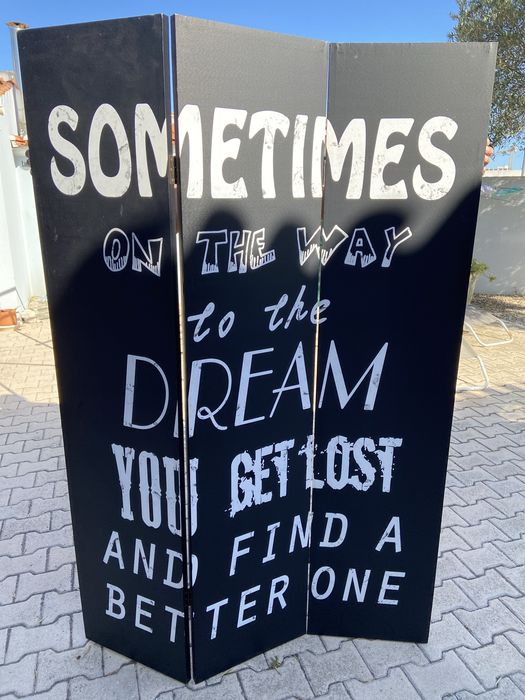 SOMETIMES
ON THE WAY
to the
DREAM
YOU GET LOST
AND FIND A
BETTER ONE